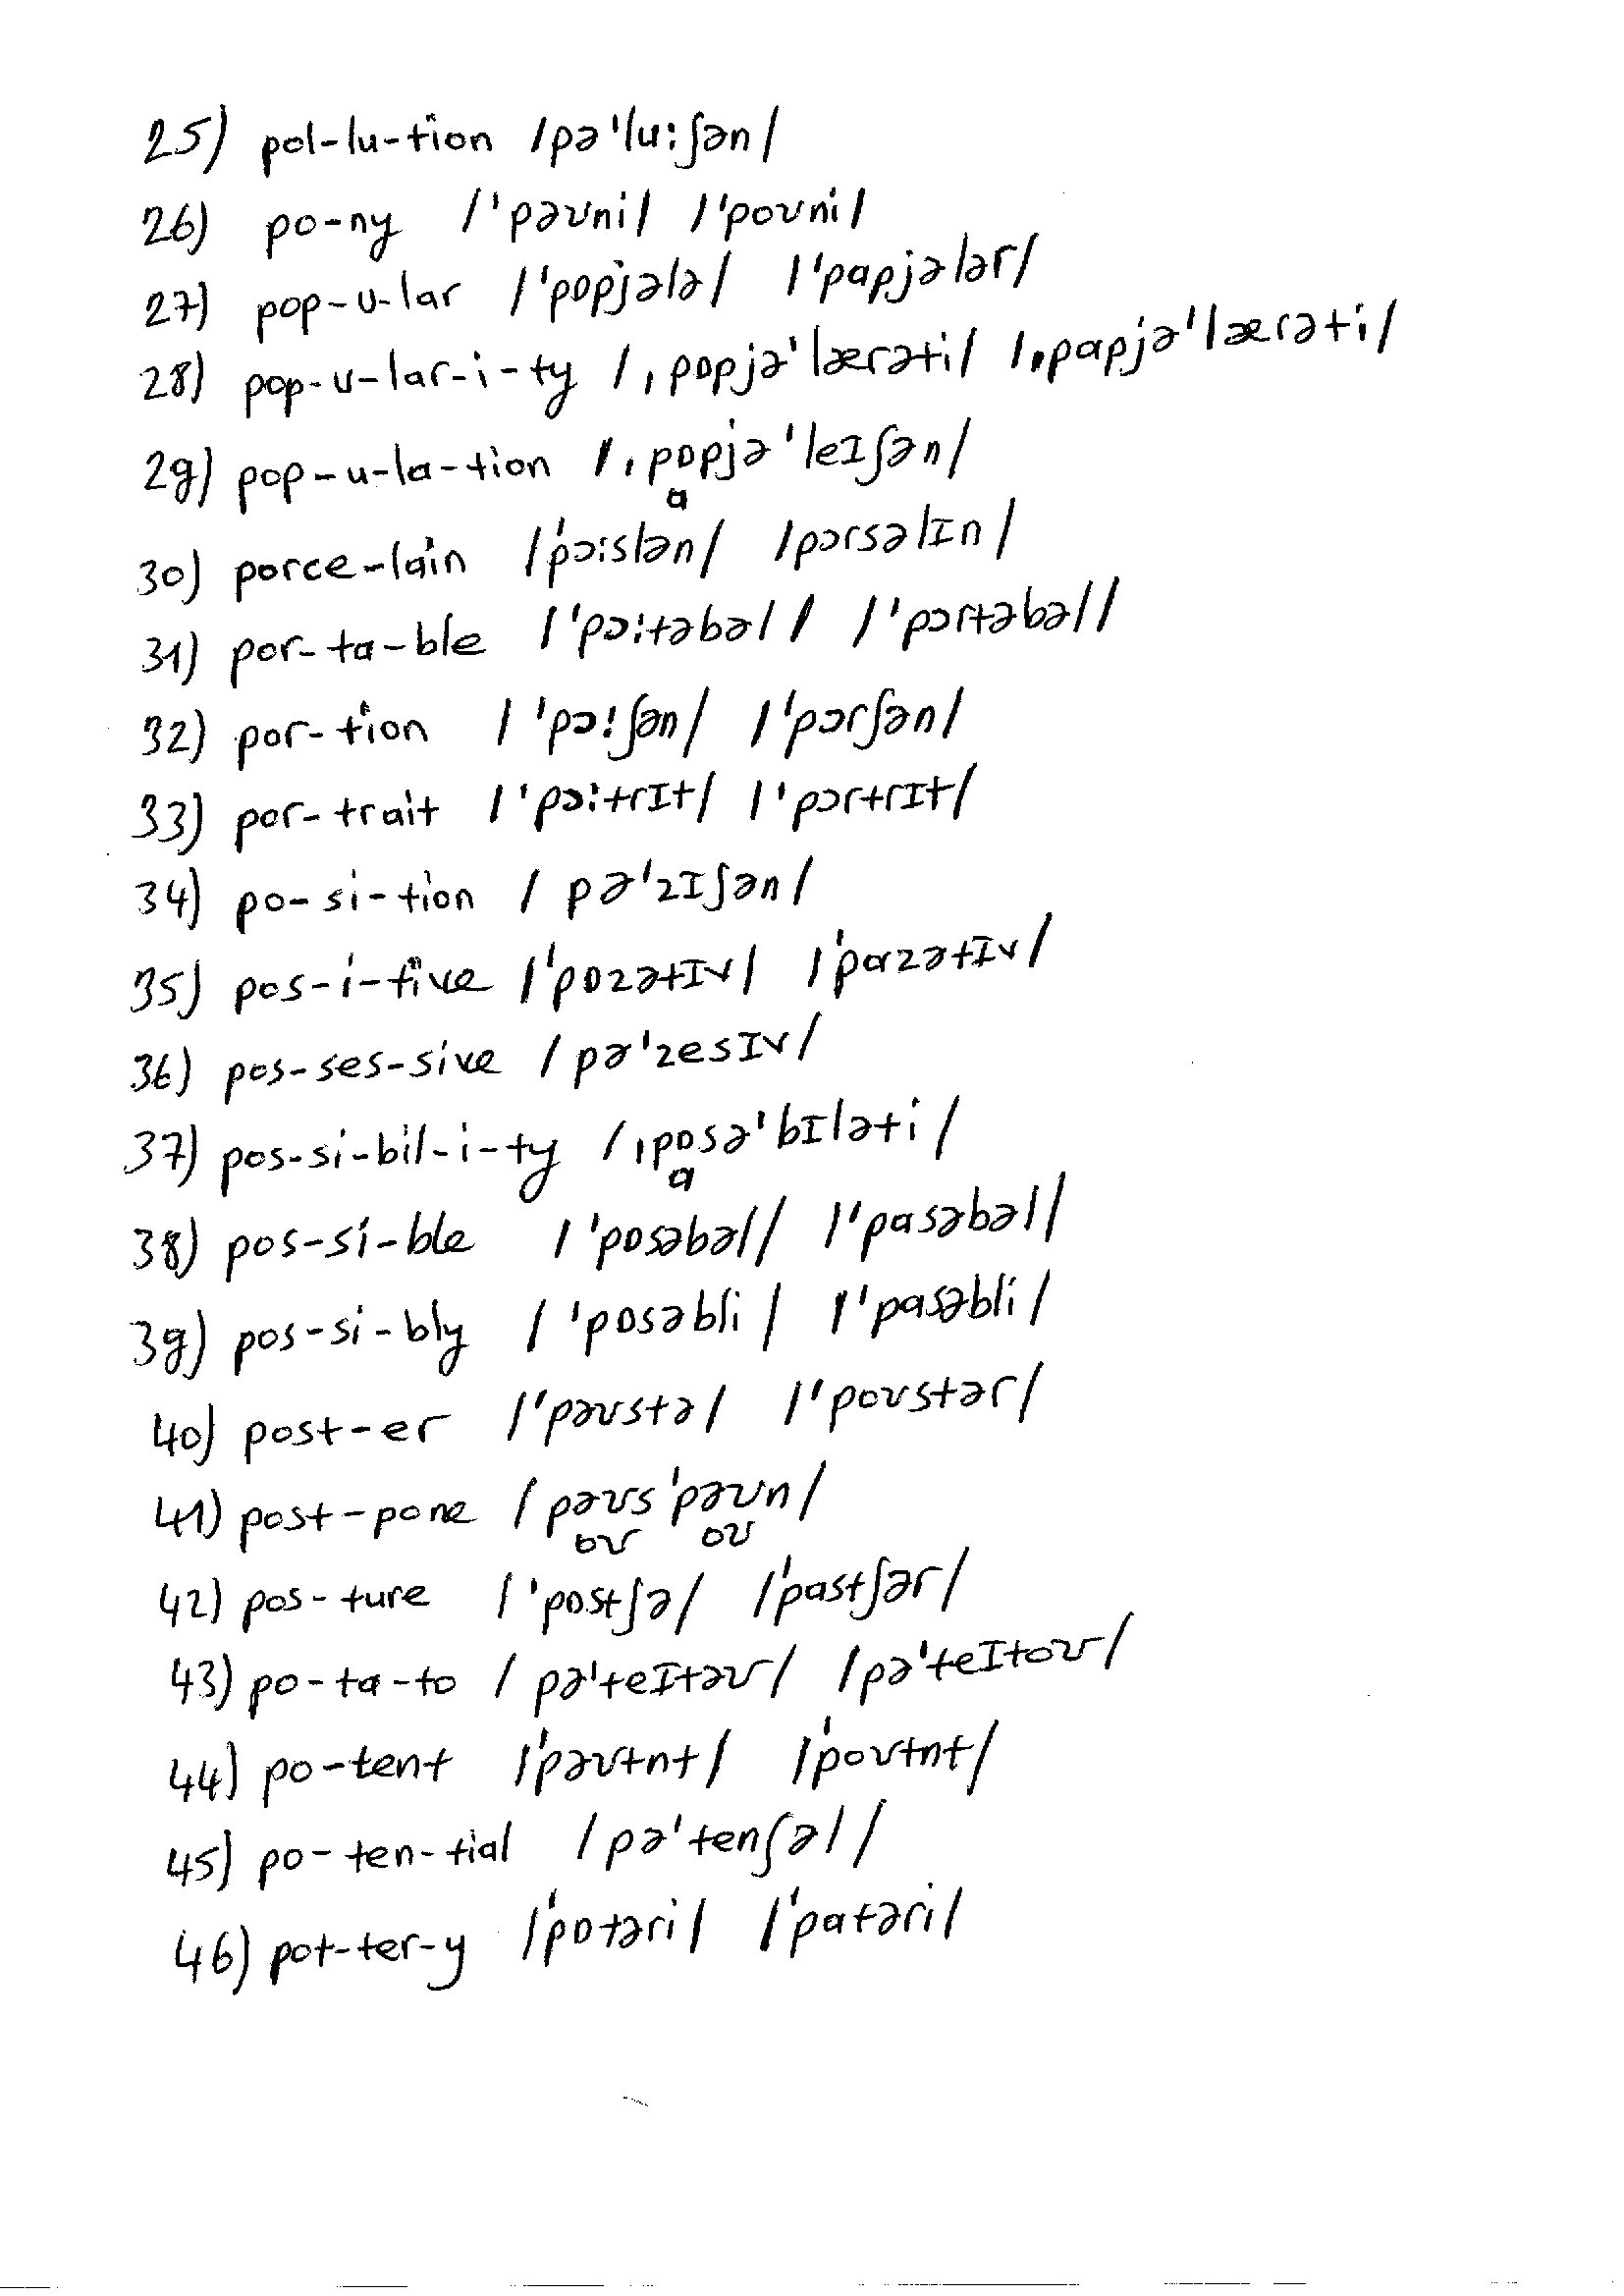 25) pol-lu-tion /pə'lu:ʃən/
26) po-ny /'pəʊni/ /'poʊni/
27) pop-u-lar /'pɒpjələ/ /'pɑpjələr/
28) pop-u-lar-i-ty /ˌpɒpjə'lærəti/ /ˌpɑpjə'lærəti/
29) pop-u-la-tion /ˌpɒpjə'leɪʃən/
ɑ
30) porce-lain /'pɔ:slən/ /pɔrsəlɪn/
31) por-ta-ble /'pɔ:təbəl/ /'pɔrtəbəl/
32) por-tion /'pɔ:ʃən/ /'pɔrʃən/
33) por-trait /'pɔ:trɪt/ /'pɔrtrɪt/
34) po-si-tion /pə'zɪʃən/
35) pos-i-tive /'pɒzətɪv/ /'pɑzətɪv/
36) pos-ses-sive /pə'zesɪv/
37) pos-si-bil-i-ty /ˌpɒsə'bɪləti/
ɑ
38) pos-si-ble /'pɒsəbəl/ /'pɑsəbəl/
39) pos-si-bly /'pɒsəbli/ /'pɑsəbli/
40) post-er /'pəʊstə/ /'poʊstər/
41) post-pone /pəʊs'pəʊn/
oʊ oʊ
42) pos-ture /'pɒstʃə/ /'pɑstʃər/
43) po-ta-to /pə'teɪtəʊ/ /pə'teɪtoʊ/
44) po-tent /'pəʊtnt/ /'poʊtnt/
45) po-ten-tial /pə'tenʃəl/
46) pot-ter-y /'pɒtəri/ /'pɑtəri/